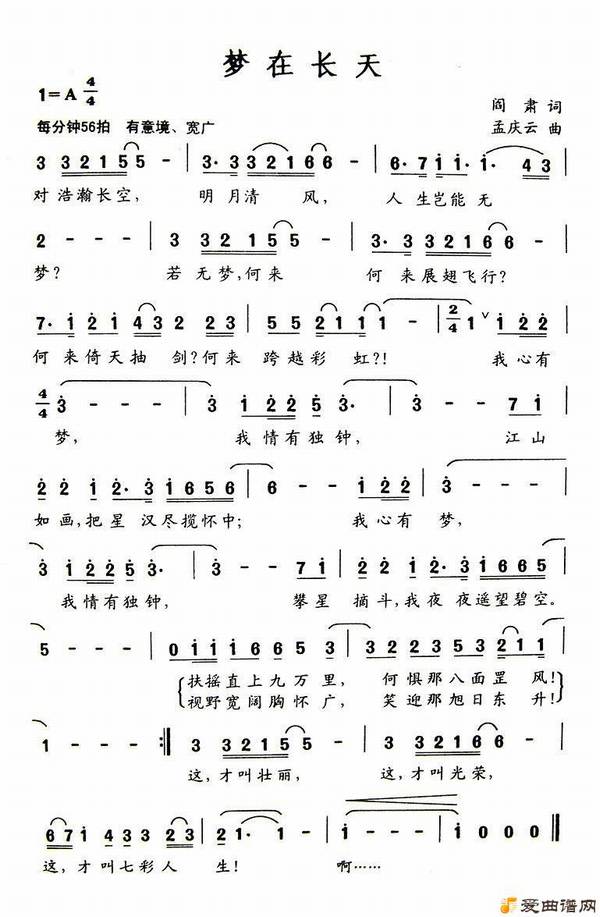 梦在长天
1=A 4/4
阎肃 词
每分钟56拍 有意境、宽广
孟庆云 曲
3 3 2 1 5 5 | 3· 3 3 2 1 6 6 | 6· 7 1 1· 1· 4 3 |
对浩瀚长空, 明月清 风, 人生岂能无
2 - - - | 3 3 2 1 5 5 | 3· 3 3 2 1 6 6 |
梦? 若无梦,何来 何来展翅飞行?
7· 1 1 2 1 4 3 2 3 2 2 | 5 5 5 2 1 1 1 - | 2/4 1 ∨ 1 2 2 |
何来倚天抽 剑?何来 跨越彩 虹?! 我心有
4/4 3 - - - | 3 1 2 2 5 3· | 3 - - 7 1 |
梦, 我情有独钟, 江山
2 2 1 2· 3 1 6 5 6 | 6 - - 1 2 2 | 3 - - - |
如画,把星 汉尽揽怀中; 我心有 梦,
3 1 2 2 5 3· | 3 - - 7 1 | 2 1 2 2· 3 1 6 6 5 |
我情有独钟, 攀星 摘斗,我夜 夜遥望碧空。
5 - - - | 0 1 1 1 1 6 6 5 3 | 3 3 2 2 3 5 3 2 1 1 |
扶摇直上九万里, 何惧那八面罡 风!
视野宽阔胸怀广, 笑迎那旭日东 升!
1 - - - :‖ 3 3 2 1 5 5 | 3 3 2 1 6 6 |
这,才叫壮丽, 这,才叫光荣,
6 7 1 4 3 3 2 3 | 2 1· 1 - | 1 - - - | 1 0 0 0 ‖
这,才叫七彩人 生! 啊……
爱曲谱网